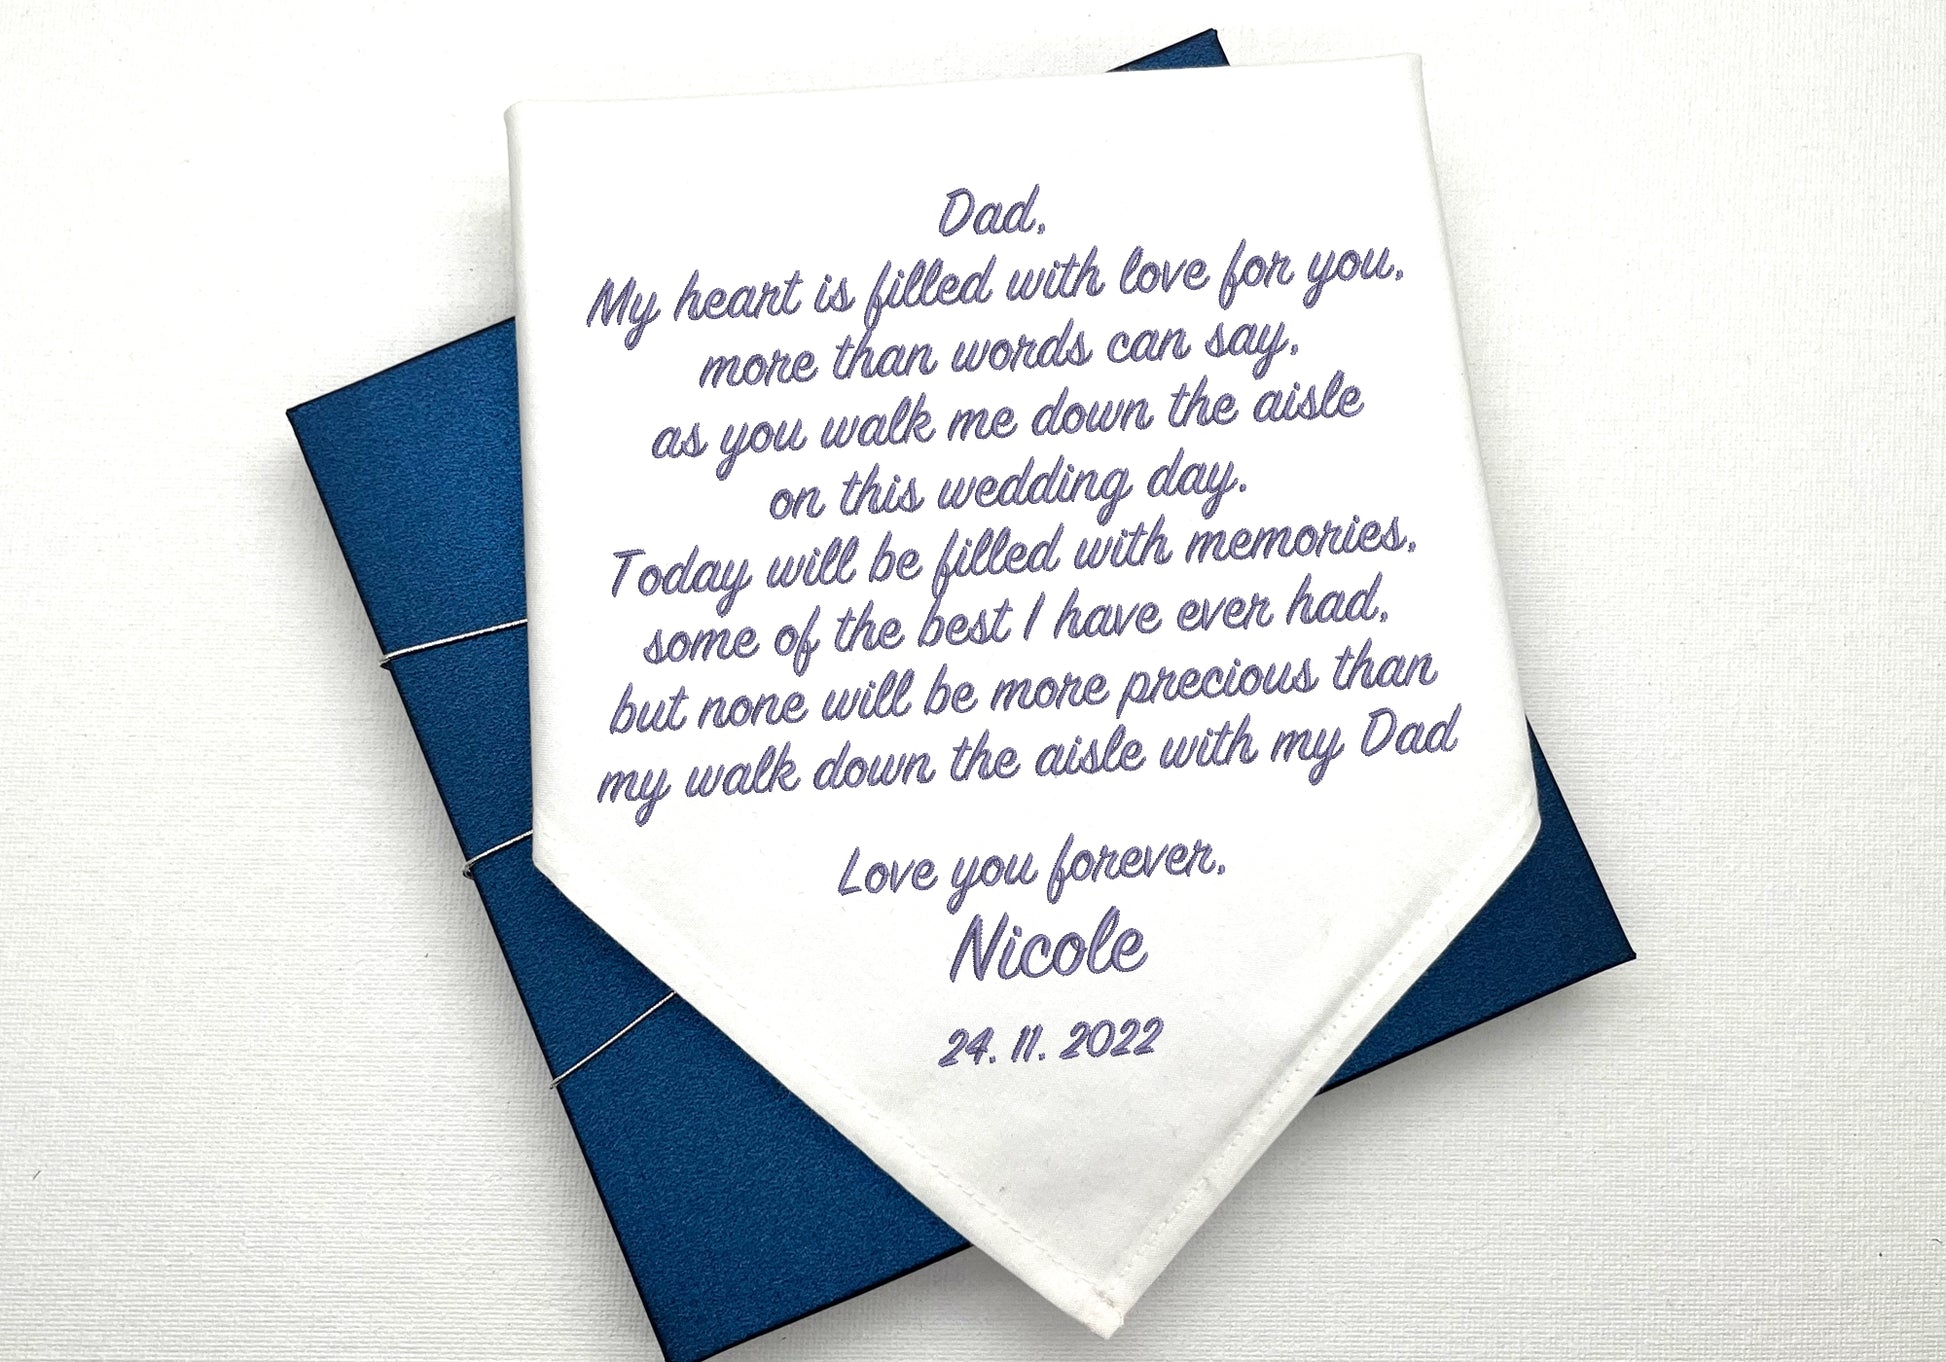 Dad,
My heart is filled with love for you,
more than words can say,
as you walk me down the aisle
on this wedding day.
Today will be filled with memories,
some of the best I have ever had,
but none will be more precious than
my walk down the aisle with my Dad
Love you forever,
Nicole
24. 11. 2022